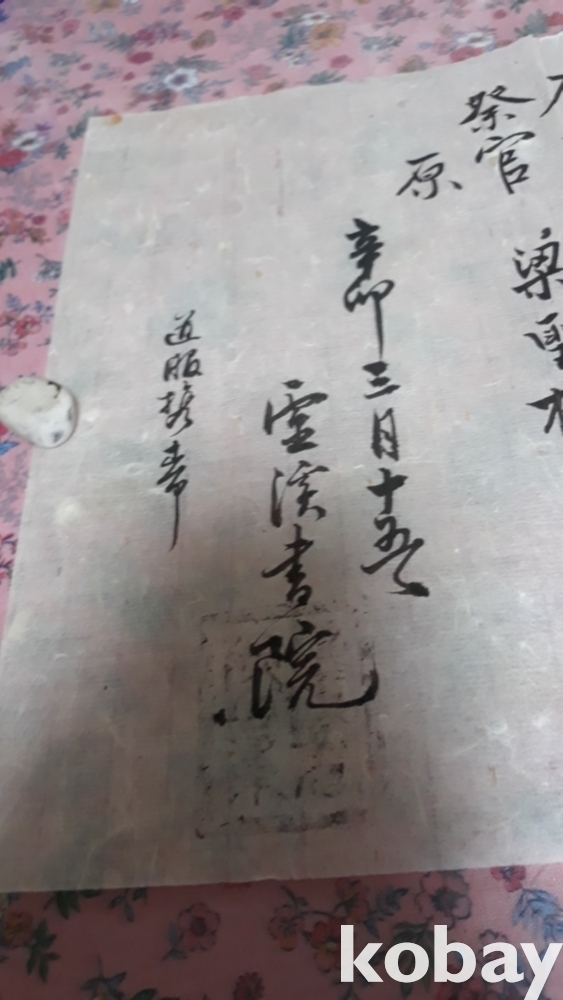 祭官 梁聖
原
辛卯三月十五日
霊溪書院
道服携帶
kobay